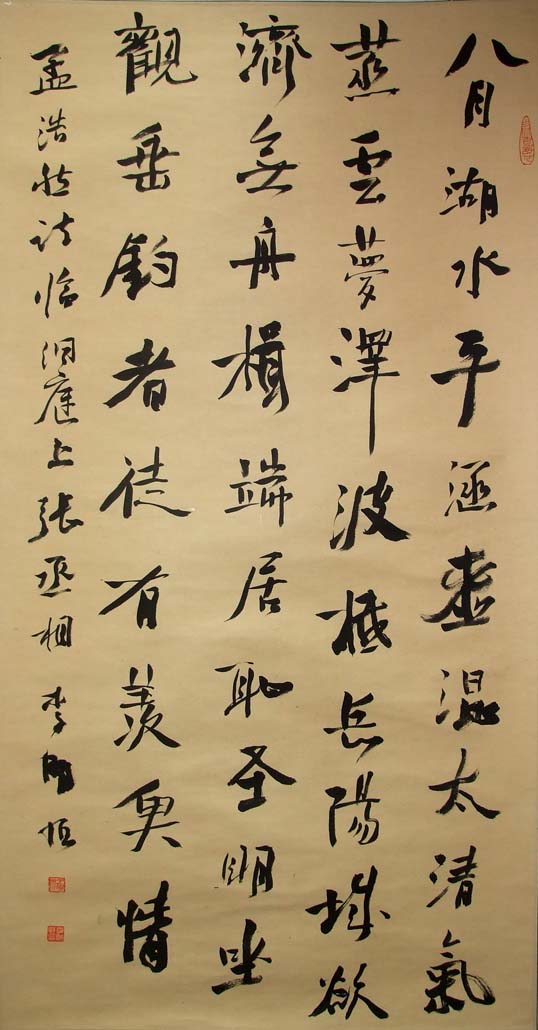 八月湖水平涵虚混太清氣
蒸云夢澤波撼岳陽城欲
濟無舟楫端居恥圣明坐
觀垂釣者徒有羨魚情
孟浩然诗临洞庭上张丞相 李恒